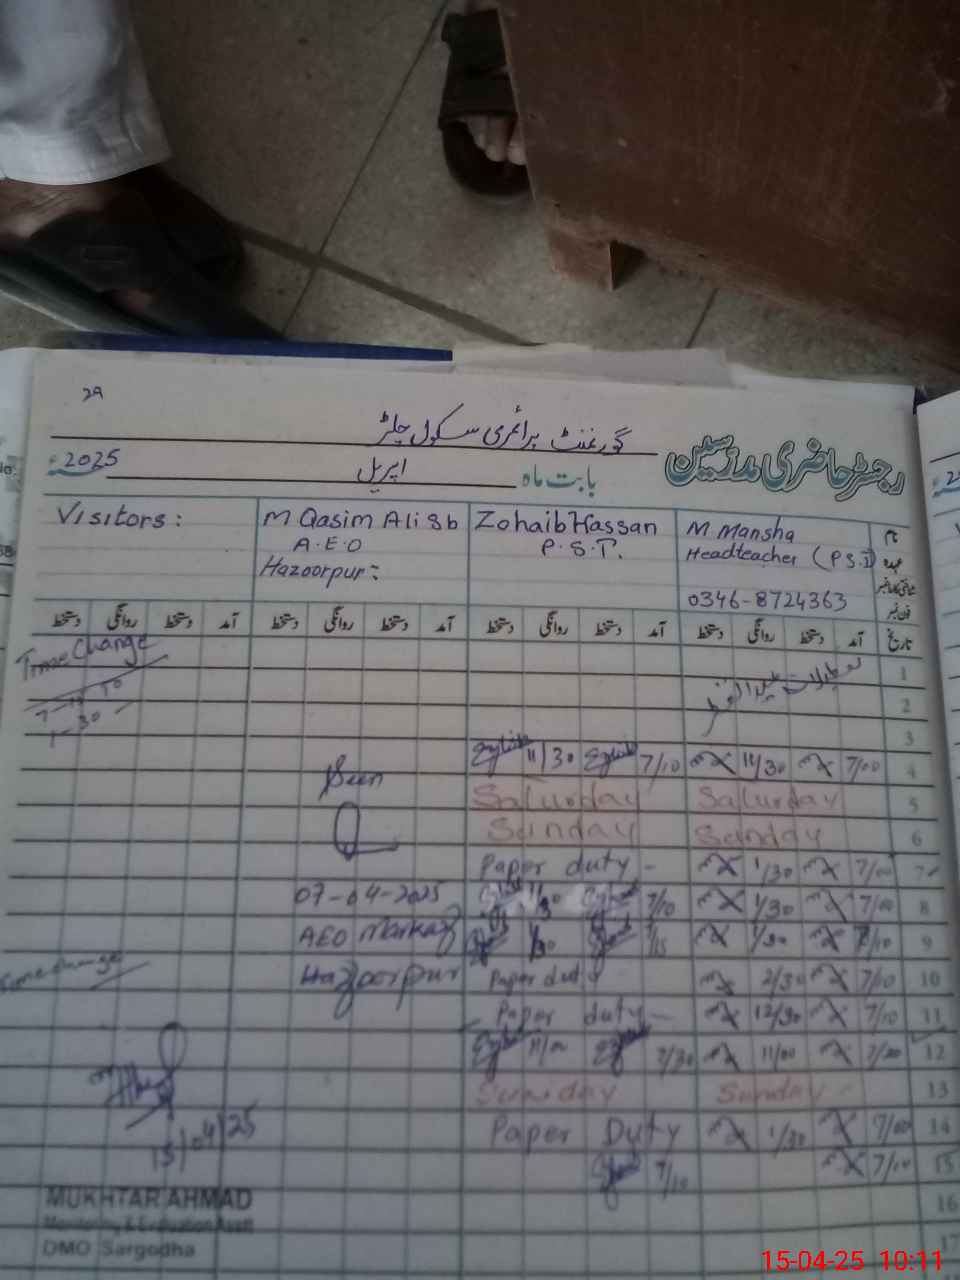 29
گورنمنٹ پرائمری سکول چلڑ
رجسٹر حاضری مدرسین
بابت ماہ اپریل 2025ء
Visitors:
M Qasim Ali Sb
A.E.O
Hazoorpur:
Zohaib Hassan
P.S.T.
M Mansha
Headteacher (P.S.T)
0346-8724363
نام
عہدہ
فون نمبر
تاریخ آمد دستخط روانگی دستخط آمد دستخط روانگی دستخط آمد دستخط روانگی دستخط آمد دستخط روانگی دستخط
Time Change
1-30
1 تعطیلات عید الفطر
2
3
4 7/00 11/30 7/10 11/30
Seen
5 Saturday Saturday
6 Sunday Sunday
7 7/00 1/30 Paper duty -
8 7/00 1/30 7/10 1/30 07-04-2025
9 7/10 1/30 7/15 1/30 AEO Markaz
10 7/10 2/30 Paper duty Hazoorpur
Time change
11 7/10 12/30 Paper duty -
12 11/00 7/30 11/00
13 Sunday Sunday
14 7/00 1/30 Paper Duty
15 7/00 7/10
15/04/25
16
17
MUKHTAR AHMAD
Monitoring & Evaluation Asstt
DMO Sargodha
15-04-25 10:11